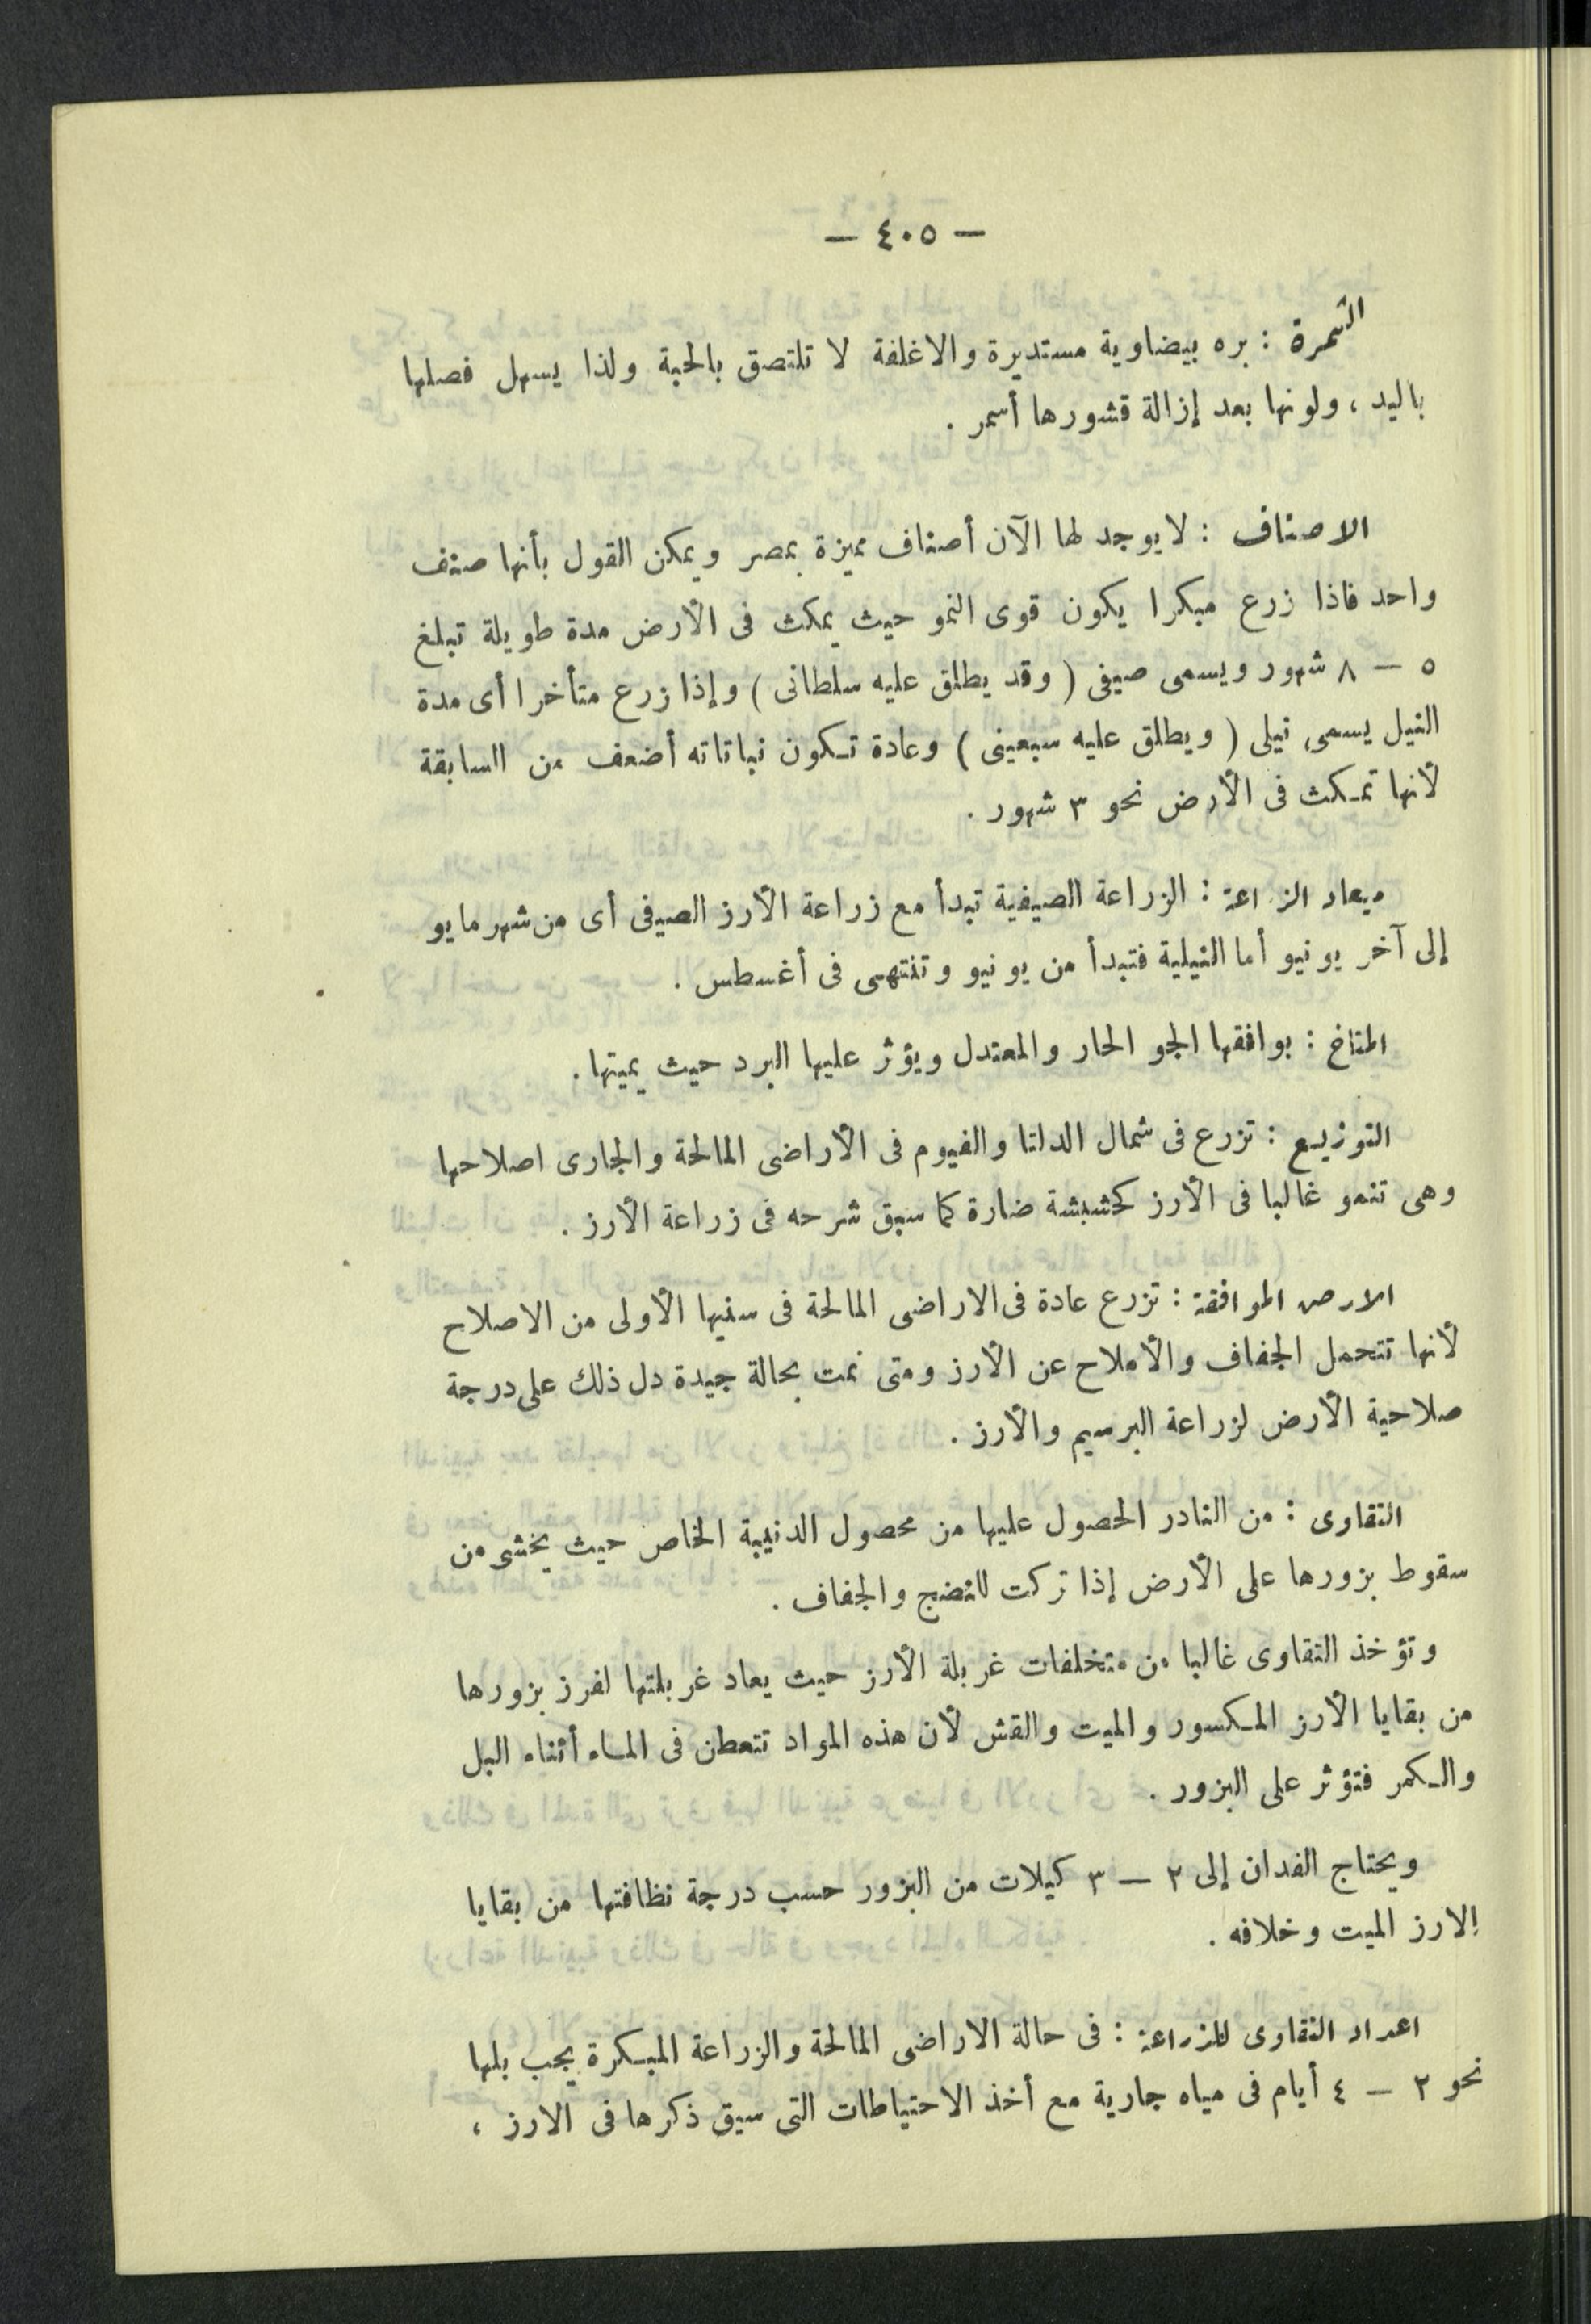 — ٤٠٥ —
الثمرة : بره بيضاوية مستديرة والاغلفة لا تلتصق بالحبة ولذا يسهل فصلها
باليد ، ولونها بعد إزالة قشورها أسمر .
الاصناف : لا يوجد لها الآن أصناف مميزة بمصر ويمكن القول بأنها صنف
واحد فاذا زرع مبكرا يكون قوى النمو حيث يمكث فى الأرض مدة طويلة تبلغ
٥ — ٨ شهور ويسمى صيفى ( وقد يطلق عليه سلطانى ) وإذا زرع متأخرا أى مدة
النيل يسمى نيلى ( ويطلق عليه سبعينى ) وعادة تكون نباتاته أضعف من السابقة
لأنها تمكث فى الأرض نحو ٣ شهور .
ميعاد الزراعة : الزراعة الصيفية تبدأ مع زراعة الأرز الصيفى أى من شهر مايو
إلى آخر يونيو أما النيلية فتبدأ من يونيو وتنتهى فى أغسطس .
المناخ : يوافقها الجو الحار والمعتدل ويؤثر عليها البرد حيث يميتها .
التوزيع : تزرع فى شمال الدلتا والفيوم فى الأراضى المالحة والجارى اصلاحها
وهى تنمو غالبا فى الأرز كحشيشة ضارة كما سبق شرحه فى زراعة الأرز .
الارض الموافقة : تزرع عادة فى الاراضى المالحة فى سنيها الأولى من الاصلاح
لأنها تتحمل الجفاف والأملاح عن الأرز ومتى نمت بحالة جيدة دل ذلك على درجة
صلاحية الأرض لزراعة البرسيم والأرز .
التقاوى : من النادر الحصول عليها من محصول الدنيبة الخاص حيث يخشى من
سقوط بزورها على الأرض إذا تركت للنضج والجفاف .
وتؤخذ التقاوى غالبا من متخلفات غربلة الأرز حيث يعاد غربلتها لفرز بزورها
من بقايا الأرز المكسور والميت والقش لأن هذه المواد تتعطن فى الماء أثناء البل
والكمر فتؤثر على البزور .
ويحتاج الفدان إلى ٢ — ٣ كيلات من البزور حسب درجة نظافتها من بقايا
الارز الميت وخلافه .
اعداد التقاوى للزراعة : فى حالة الاراضى المالحة والزراعة المبكرة يجب بلها
نحو ٢ — ٤ أيام فى مياه جارية مع أخذ الاحتياطات التى سبق ذكرها فى الارز ،